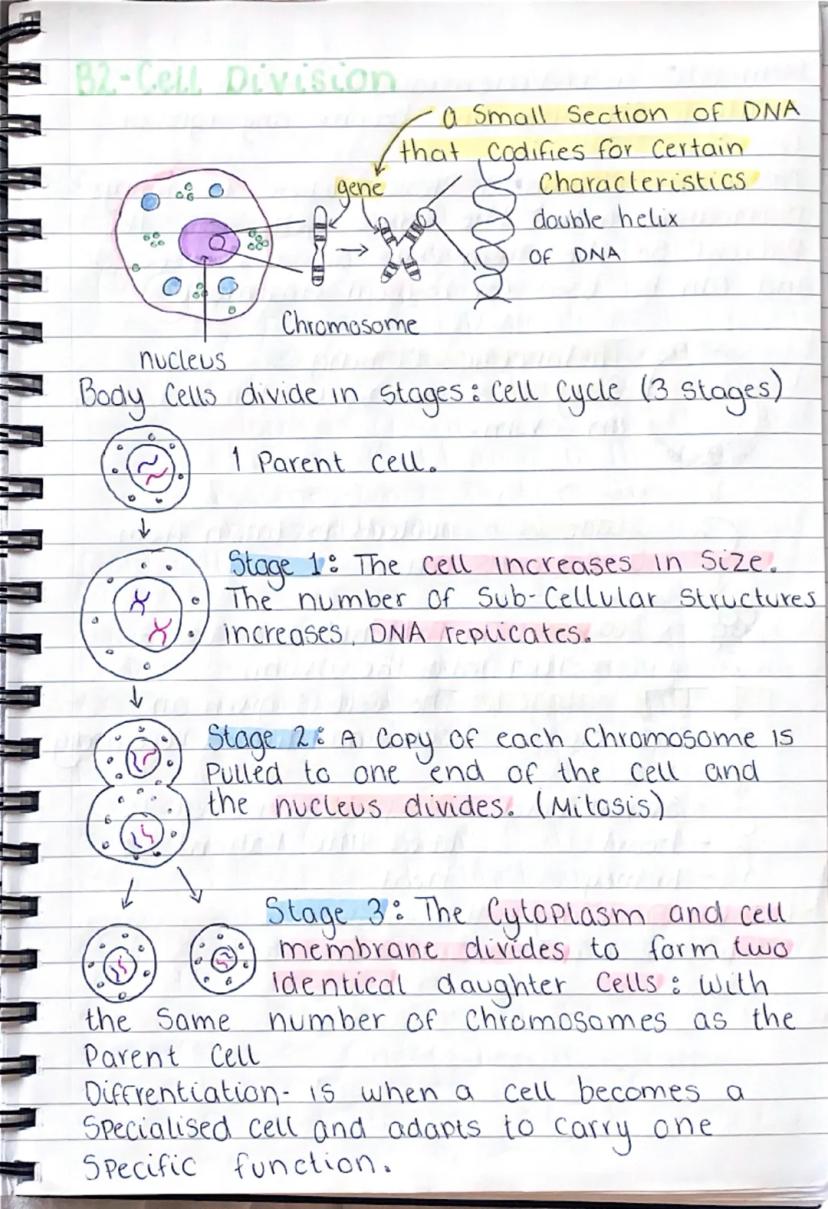 B2-Cell Division
a small section of DNA
that codifies for certain
gene
characteristics
double helix
of DNA
Chromosome
nucleus
Body cells divide in stages: Cell Cycle (3 stages)
1 Parent cell.
Stage 1: The cell increases in size.
The number of sub-cellular structures
increases, DNA replicates.
Stage 2: A copy of each chromosome is
pulled to one end of the cell and
the nucleus divides. (Mitosis)
Stage 3: The cytoplasm and cell
membrane divides to form two
identical daughter cells: with
the same number of chromosomes as the
parent cell
Diffrentiation- is when a cell becomes a
specialised cell and adapts to carry one
specific function.